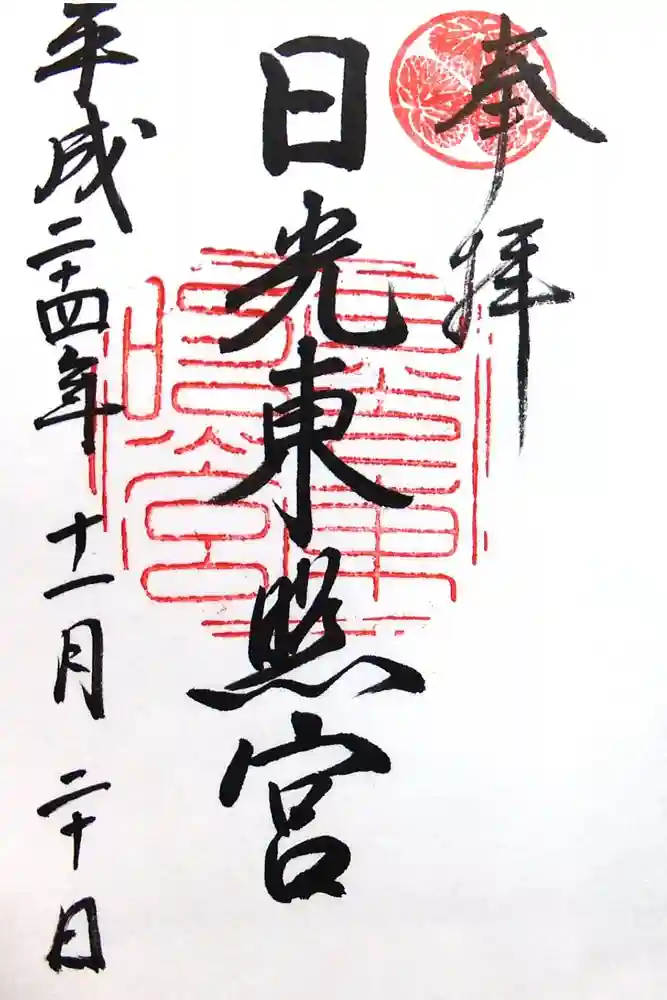 奉拝
日光東照宮
平成二十四年十一月二十日